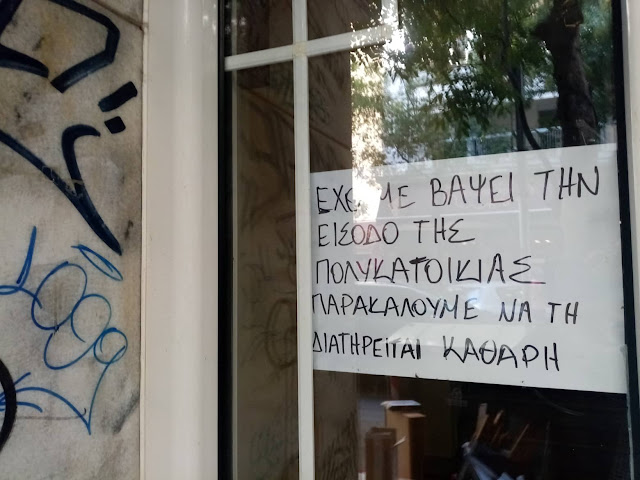 ΕΧΟΥΜΕ ΒΑΨΕΙ ΤΗΝ
ΕΙΣΟΔΟ ΤΗΣ
ΠΟΛΥΚΑΤΟΙΚΙΑΣ
ΠΑΡΑΚΑΛΟΥΜΕ ΝΑ ΤΗ
ΔΙΑΤΗΡΕΙΤΑΙ ΚΑΘΑΡΗ